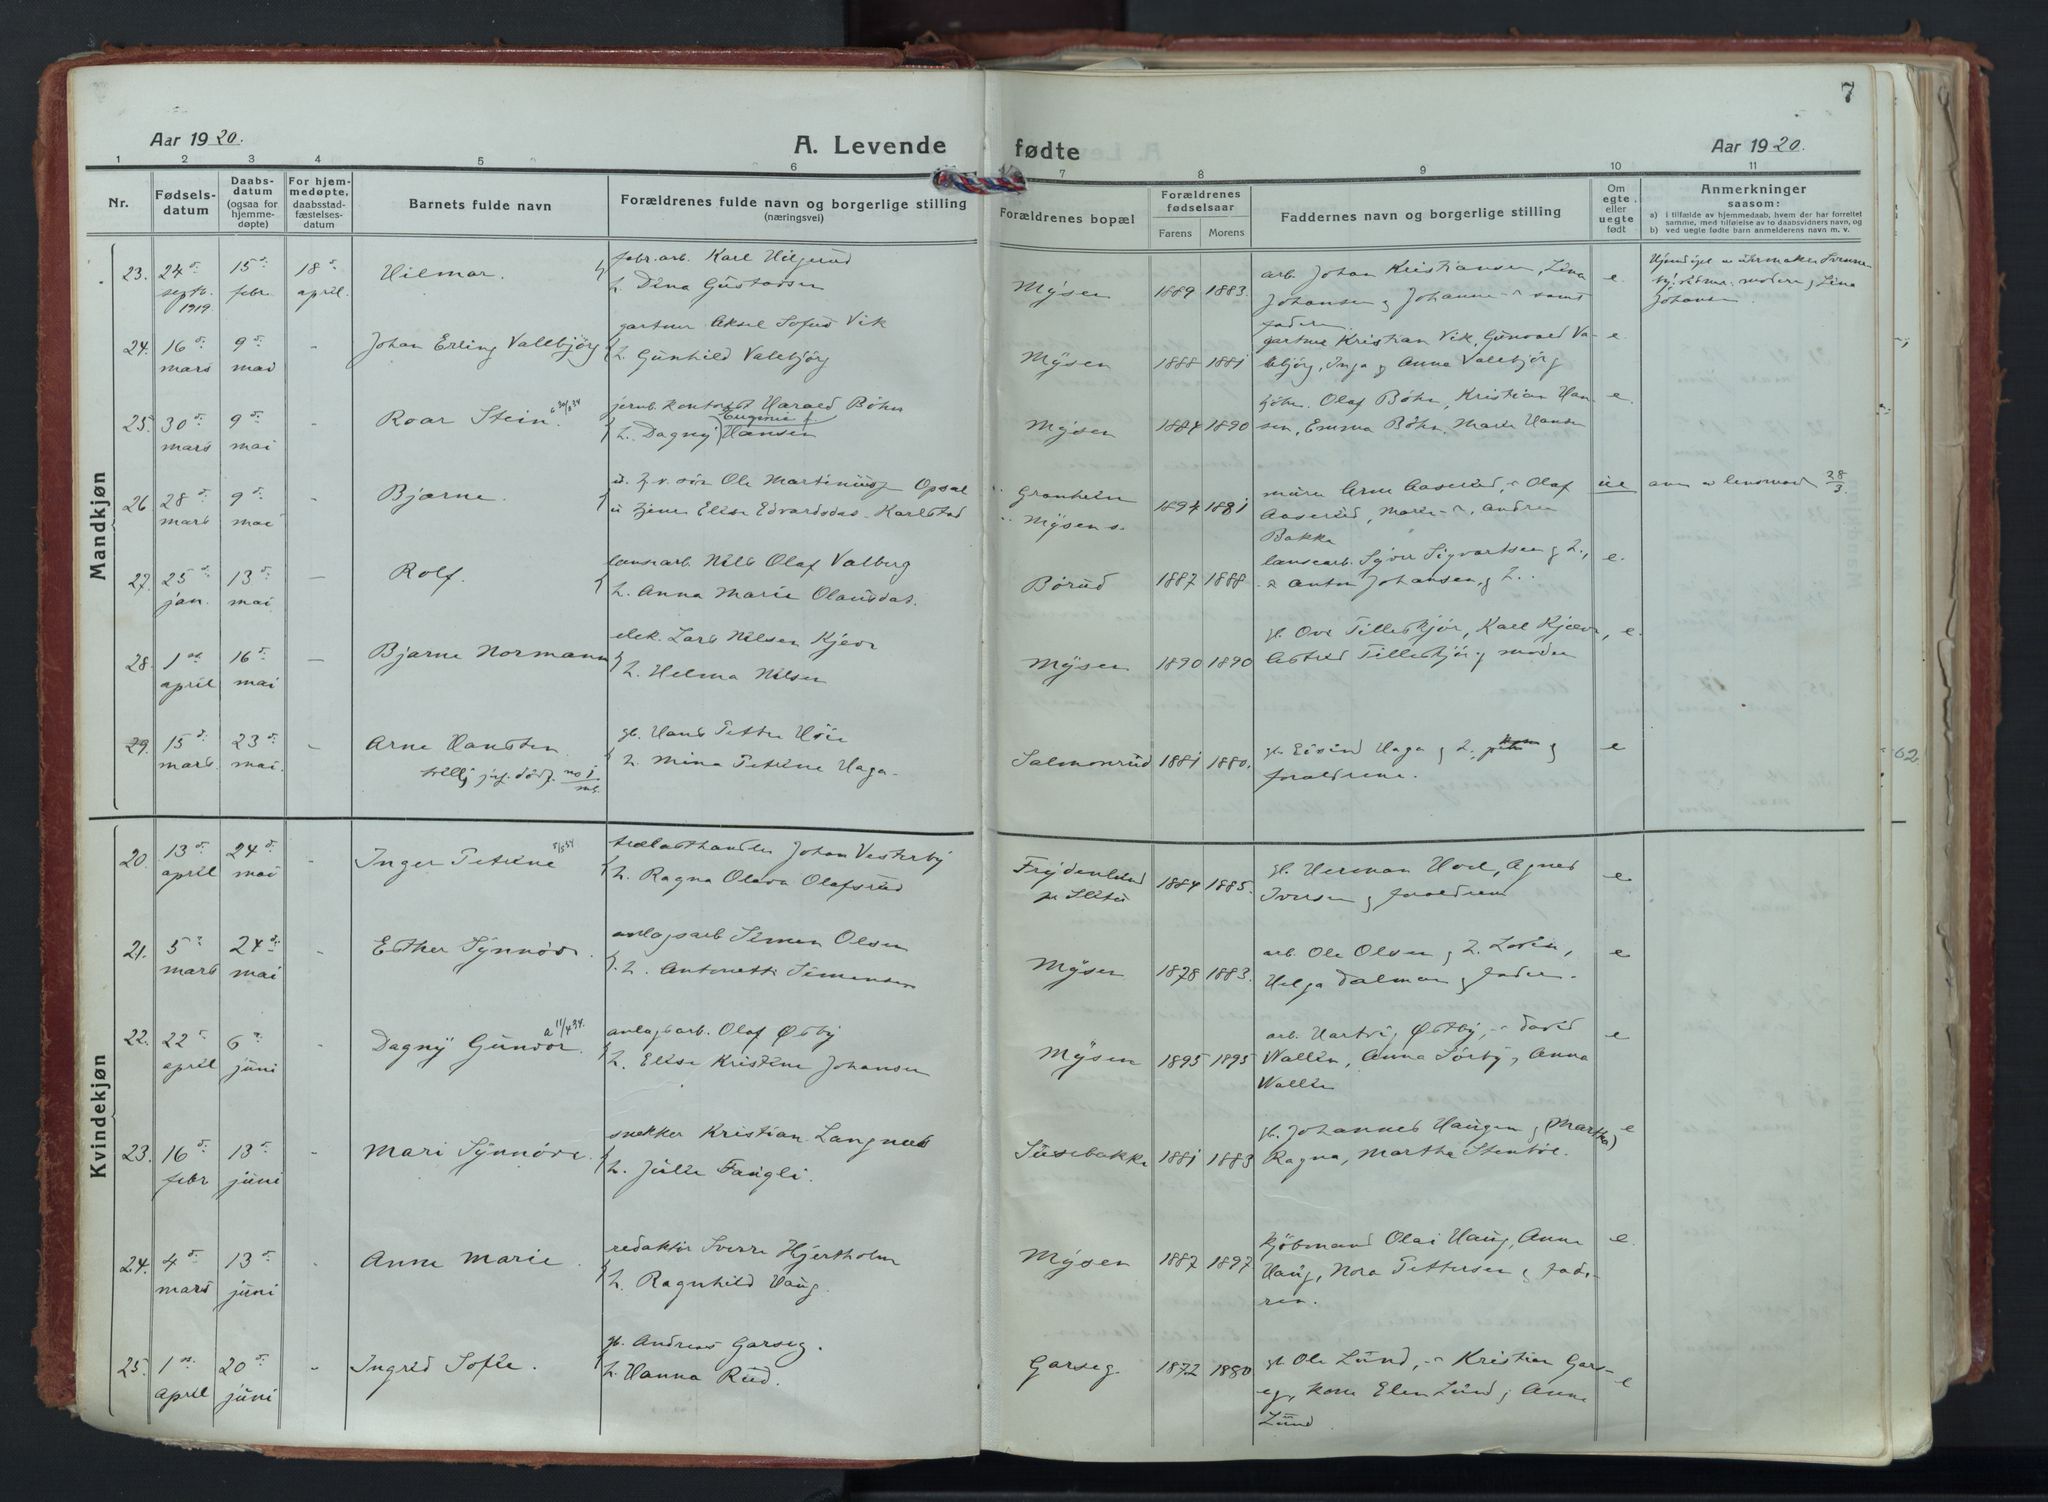 7
Aar 1920.
A. Levende fødte
Aar 1920.
1 2 3 4 5 6 7 8 9 10 11
Nr.
Fødsels-
datum
Daabs-
datum
(ogsaa for
hjemme-
døpte)
For hjem-
medøpte,
daabsstad-
fæstelses-
datum
Barnets fulde navn
Forældrenes fulde navn og borgerlige stilling
(næringsvei)
Forældrenes bopæl
Forældrenes
fødselsaar
Farens Morens
Faddernes navn og borgerlige stilling
Om
egte
eller
uegte
født
Anmerkninger
saasom:
a) i tilfælde av hjemmedaab, hvem der har forrettet
samme, med tilføielse av to daabsvidners navn, og
b) ved uegte fødte barn anmelderens navn m. v.
Mandkjøn
23. 24 septb. 1919 15 febr. 18 april. Hilmar.
fabr. arb. Karl
h. Dina Gustavsen
Mysen 1889 1883.
arb. Johan Kristiansen, Lina
Johansen og Johanne samt
faderen
e
Johansen.
24. 16 mars 9 mai - Johan Erling Vallebjørg
gartner Aksel Sofus Vik
h. Gunhild Vallebjørg
Mysen 1888 1881
gartner Kristian Vik, Gunvald Va-
lebjørg, Inga og Anna Valebjørg
e.
25. 30 mars 9 mai - Roar Stein
jernb. kontorist Harald Bøhn
Eugenie
h. Dagny Hansen
Mysen 1884 1890
Olaf Bøhn, Kristian Han-
sen, Emma Bøhn, Marie Hansen
e.
26 28 mars 9 mai - Bjarne.
u. g. v. søn Ole Martiniusen Opsal
u tjener Elise Edvardsdat. Karlstad
Granheim
Mysens.
1894 1881
murer Arne Aaserud, Olaf
Aaserud, Marie Andrea
Bakke
ue
anm. av lensmand 28/3.
27. 25 jan. 13 mai - Rolf.
landarb. Nils Olaf Valberg
h. Anna Marie Olausdat.
Børud 1887 1888
Sigvartsen og h.,
Anton Johansen og h.
e.
28. 1 april 16 mai - Bjarne Normann
elek. Lars Nilsen Kjever
h. Helma Nilsen
Mysen 1890 1890
gb. Ove Tilleskjør, Karl Kjever,
Astrid Tilleskjør og moder
e.
29. 15 mars 23 mai. - Arne Hansten
gb. Hans Petter Høie
h. Mina Petrine Haga.
Salmonrud 1881 1880.
gb. Eivind Haga og h. og
forældrene.
e
Kvindekjøn
20. 13 april 24 mai - Inger Petrine
trælasthandler Johan Vesterby
h. Ragna Olava Olafsrud
Frydenlund
pr Slitu
1884 1885.
gb. Herman Hoel, Agnes
Iversen og forældrene
e
21. 5 mars 24 mai - Esther Synnøve.
anlægsarb. Simen Olsen
h. Antonette Simensen
Mysen 1878 1883.
arb. Ole Olsen og h. Lovise,
Helga Dalman og fader.
e
22. 22 april 6 juni - Dagny Gunvor. a 11/4 34.
anlægsarb. Olaf Østby
h. Elise Kristine Johansen
Mysen 1895 1895
arb. Hartvig Østby, David
Wallin, Anna Sørby, Anna
Wallin
e
23. 16 febr 13 juni - Mari Synnøve.
snekker Kristian Langnes
h. Julie Fangli.
Susebakke 1881 1883
gb. Johannes Haugen og (Martha)
Ragna, Martha Stenbøl.
e
24. 4 mars 13 juni - Anne Marie.
redaktør Sverre Hjertholm
h. Ragnhild Haug.
Mysen 1887 1897
kjøbmand Olai Haug, Anne
Haug, Nora Pettersen og fade-
ren.
e.
25. 1 april 20 juni - Ingrid Sofie.
gb. Andreas Garseg.
h. Hanna Rud.
Garseg 1872 1880
gb. Ole Lund, Kristian Gars-
eg, kone Elen Lund, Anne
Lund.
e